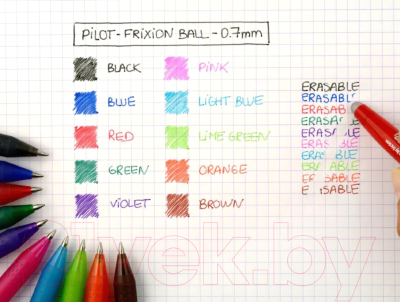 PILOT - FRIXION BALL - 0.7mm
BLACK
BLUE
RED
GREEN
VIOLET
PINK
LIGHT BLUE
LIME GREEN
ORANGE
BROWN
ERASABLE
ERASABL
ERASABLE
ERASABLE
ERASABLE
ERA BLE
ERA ABLE
E SABLE
E ISABLE